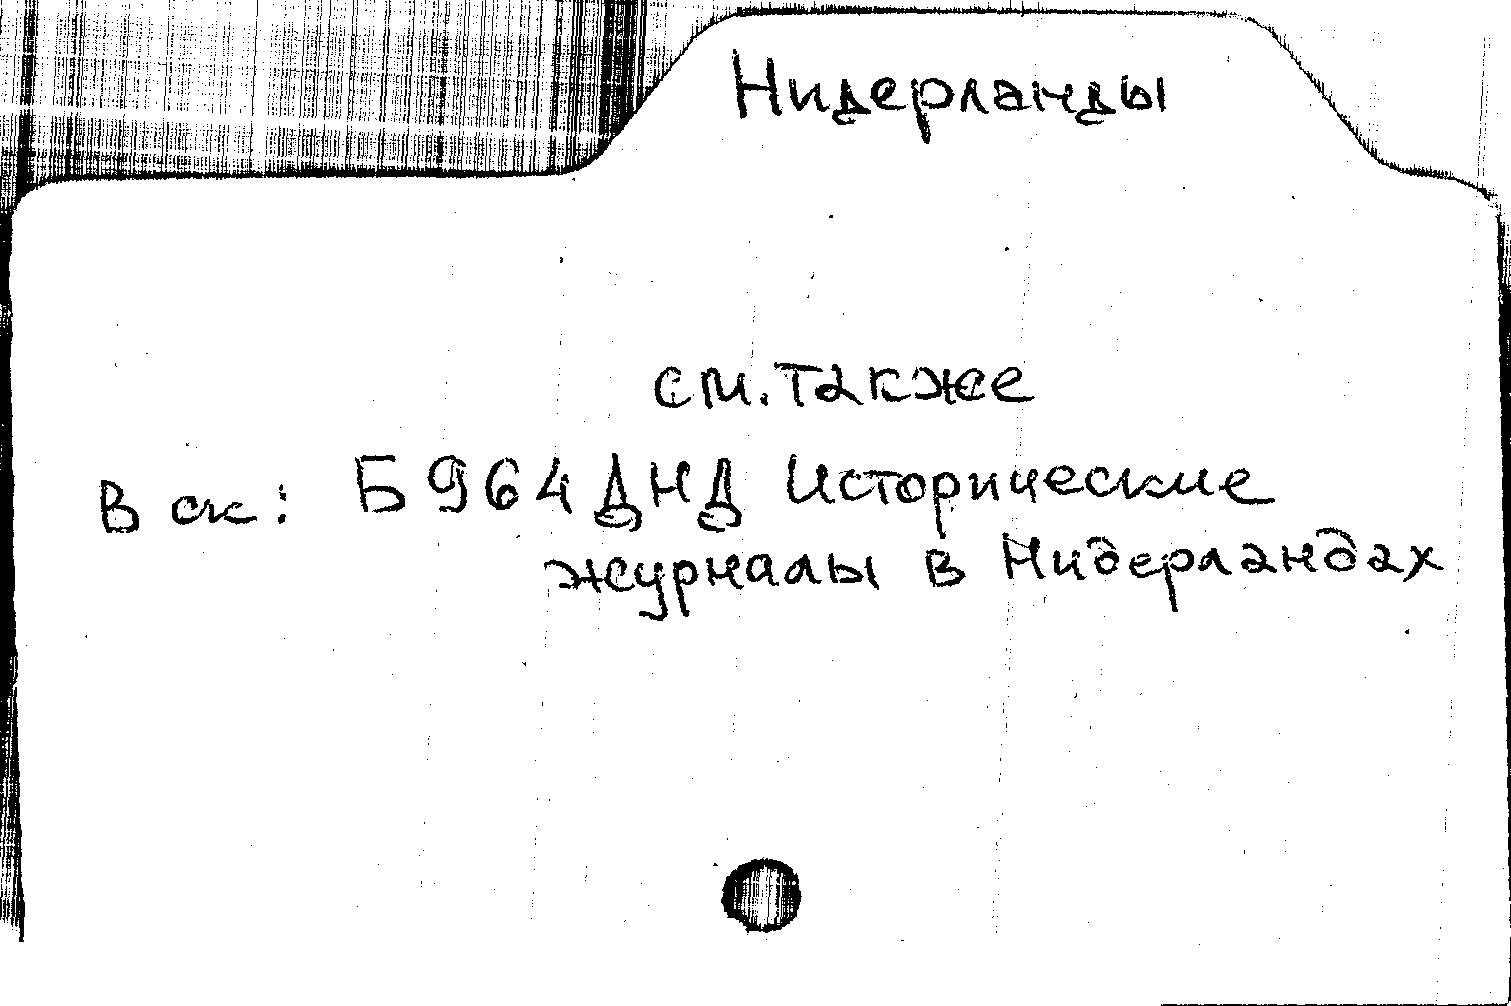 Нидерланды
см. также
В ск: Б964ДНД Исторические
журналы в Нидерландах